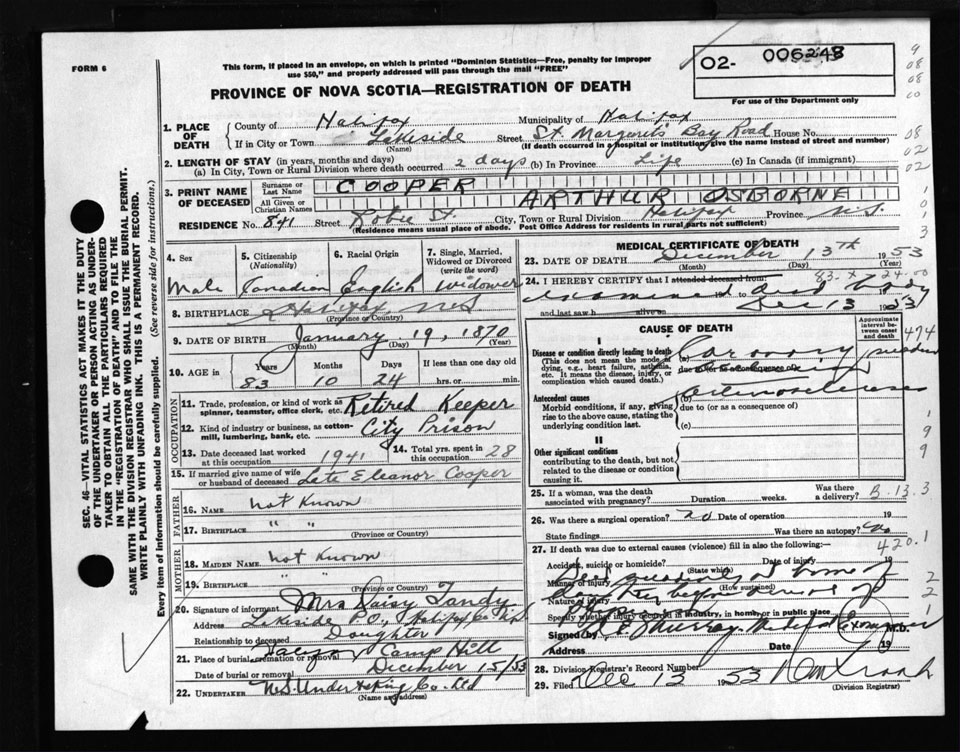 FORM 6
This form, if placed in an envelope, on which is printed "Dominion Statistics—Free, penalty for improper
use $50," and properly addressed will pass through the mail "FREE"
O2- 006248
For use of the Department only
PROVINCE OF NOVA SCOTIA—REGISTRATION OF DEATH
1. PLACE OF DEATH
County of Halifax Municipality of Halifax
If in City or Town Lakeside Street St. Margarets Bay Road House No.
(Name) (If death occurred in a hospital or institution, give the name instead of street and number)
2. LENGTH OF STAY (in years, months and days)
(a) In City, Town or Rural Division where death occurred 2 days (b) In Province Life (c) In Canada (if immigrant)
3. PRINT NAME OF DECEASED
Surname or Last Name COOPER
All Given or Christian Names ARTHUR OSBORNE
RESIDENCE No. 841 Street Robie St. City, Town or Rural Division Halifax Province N.S.
(Residence means usual place of abode. Post Office Address for residents in rural parts not sufficient)
4. Sex Male
5. Citizenship (Nationality) Canadian
6. Racial Origin English
7. Single, Married, Widowed or Divorced (write the word) Widower
8. BIRTHPLACE Halifax, N.S.
(Province or Country)
9. DATE OF BIRTH January 19, 1870
(Month) (Day) (Year)
10. AGE in Years Months Days If less than one day old
83 10 24 hrs. or min.
OCCUPATION
11. Trade, profession, or kind of work as spinner, teamster, office clerk, etc. Retired Keeper
12. Kind of industry or business, as cotton-mill, lumbering, bank, etc. City Prison
13. Date deceased last worked at this occupation 1941
14. Total yrs. spent in this occupation 28
15. If married give name of wife or husband of deceased Late Eleanor Cooper
FATHER
16. NAME Not Known
17. BIRTHPLACE " "
(Province or Country)
MOTHER
18. MAIDEN NAME Not Known
19. BIRTHPLACE " "
(Province or Country)
20. Signature of informant Mrs Daisy Tandy
Address Lakeside P.O., Halifax Co. N.S.
Relationship to deceased Daughter
21. Place of burial, cremation or removal Halifax Camp Hill
Date of burial or removal December 15/53
22. UNDERTAKER N.S. Undertaking Co. Ltd
(Name and address)
MEDICAL CERTIFICATE OF DEATH
23. DATE OF DEATH December 13th 1953
(Month) (Day) (Year)
83. 24.00
24. I HEREBY CERTIFY that I attended deceased from:
examined dead body
and last saw h alive on Dec 13 1953
CAUSE OF DEATH
Approximate interval between onset and death
I
Disease or condition directly leading to death (a) Coronary
(This does not mean the mode of dying, e.g., heart failure, asthenia, etc. It means the disease, injury, or complication which caused death.)
due to (or as a consequence of)
Antecedent causes (b) arteriosclerosis
Morbid conditions, if any, giving rise to the above cause, stating the underlying condition last.
due to (or as a consequence of)
(c)
II
Other significant conditions
contributing to the death, but not related to the disease or condition causing it.
25. If a woman, was the death associated with pregnancy? Duration weeks. Was there a delivery? B.13.3
26. Was there a surgical operation? no Date of operation 19
State findings Was there an autopsy? no
420.1
27. If death was due to external causes (violence) fill in also the following:
Accident, suicide or homicide? Date of injury 19
(State which)
Manner of injury home of
(How sustained)
Nature of injury
Specify whether injury occurred in industry, in home, or in public place
Signed by Murray Medical Examiner M.D.
Address Date 19
28. Division Registrar's Record Number
29. Filed Dec 13 1953
(Division Registrar)
SEC. 46—VITAL STATISTICS ACT MAKES IT THE DUTY
OF THE UNDERTAKER OR PERSON ACTING AS UNDER-
TAKER TO OBTAIN ALL THE PARTICULARS REQUIRED
IN THE "REGISTRATION OF DEATH" AND TO FILE THE
SAME WITH THE DIVISION REGISTRAR WHO SHALL ISSUE THE BURIAL PERMIT.
WRITE PLAINLY WITH UNFADING INK. THIS IS A PERMANENT RECORD.
Every item of information should be carefully supplied. (See reverse side for instructions.)
9
08
08
00
08
02
02
1
0
1
3
474
9
9
2
2
1